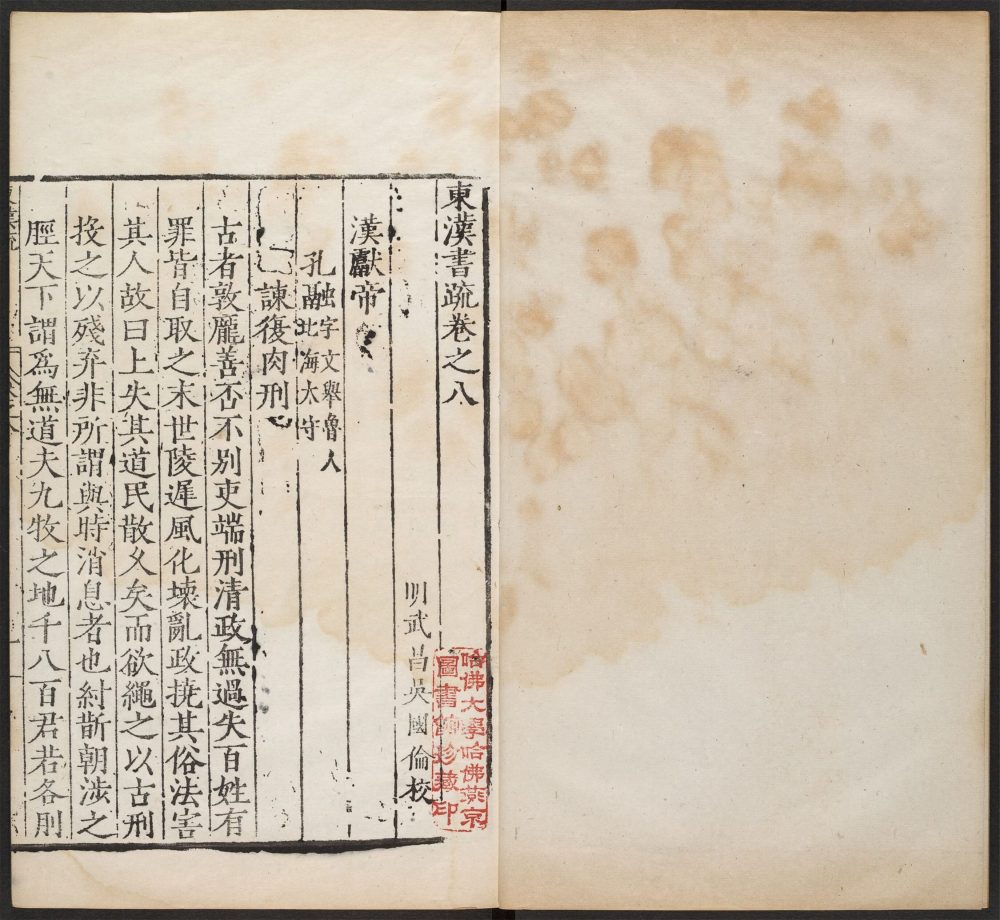 東漢書疏卷之八
明武昌吳國倫校
漢獻帝
孔融字文舉魯人
北海太守
諫復肉刑
古者敦龐善否不別吏端刑清政無過失百姓有
罪皆自取之末世陵遲風化壞亂政撓其俗法害
其人故曰上失其道民散乆矣而欲繩之以古刑
投之以殘弃非所謂與時消息者也紂斮朝涉之
脛天下謂爲無道夫九牧之地千八百君若各刖
哈佛大學哈佛燕京
圖書館珍藏印